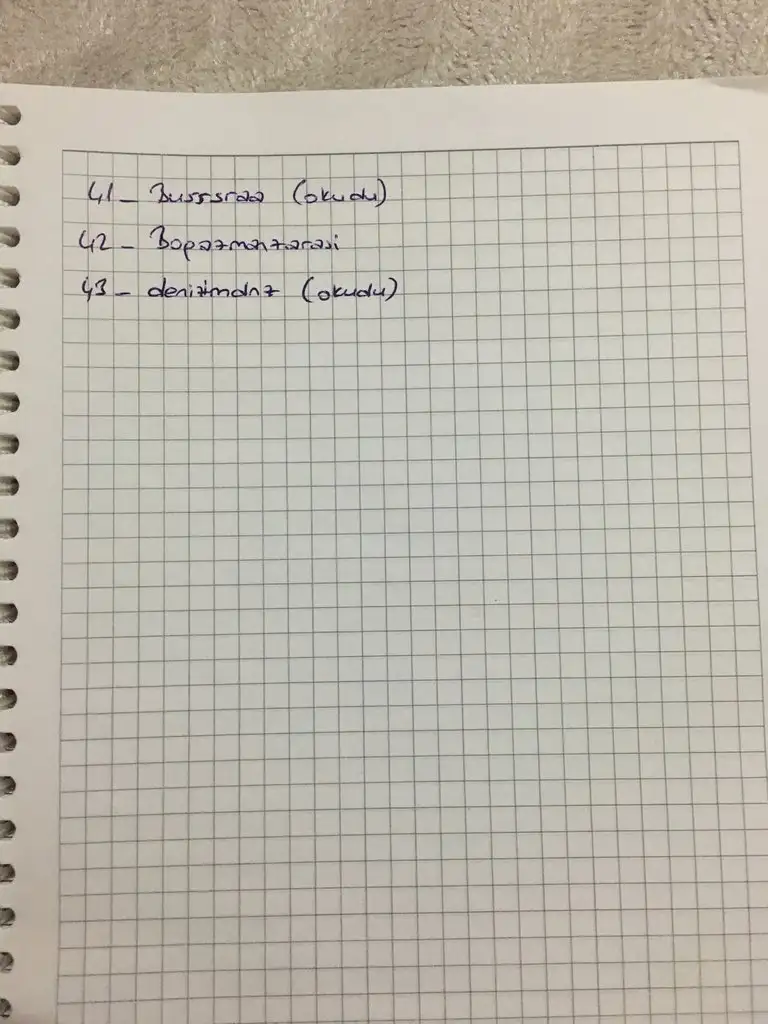 41- Busssraa (okudu)
42- Bogazmanzarasi
43- denizimdnz (okudu)